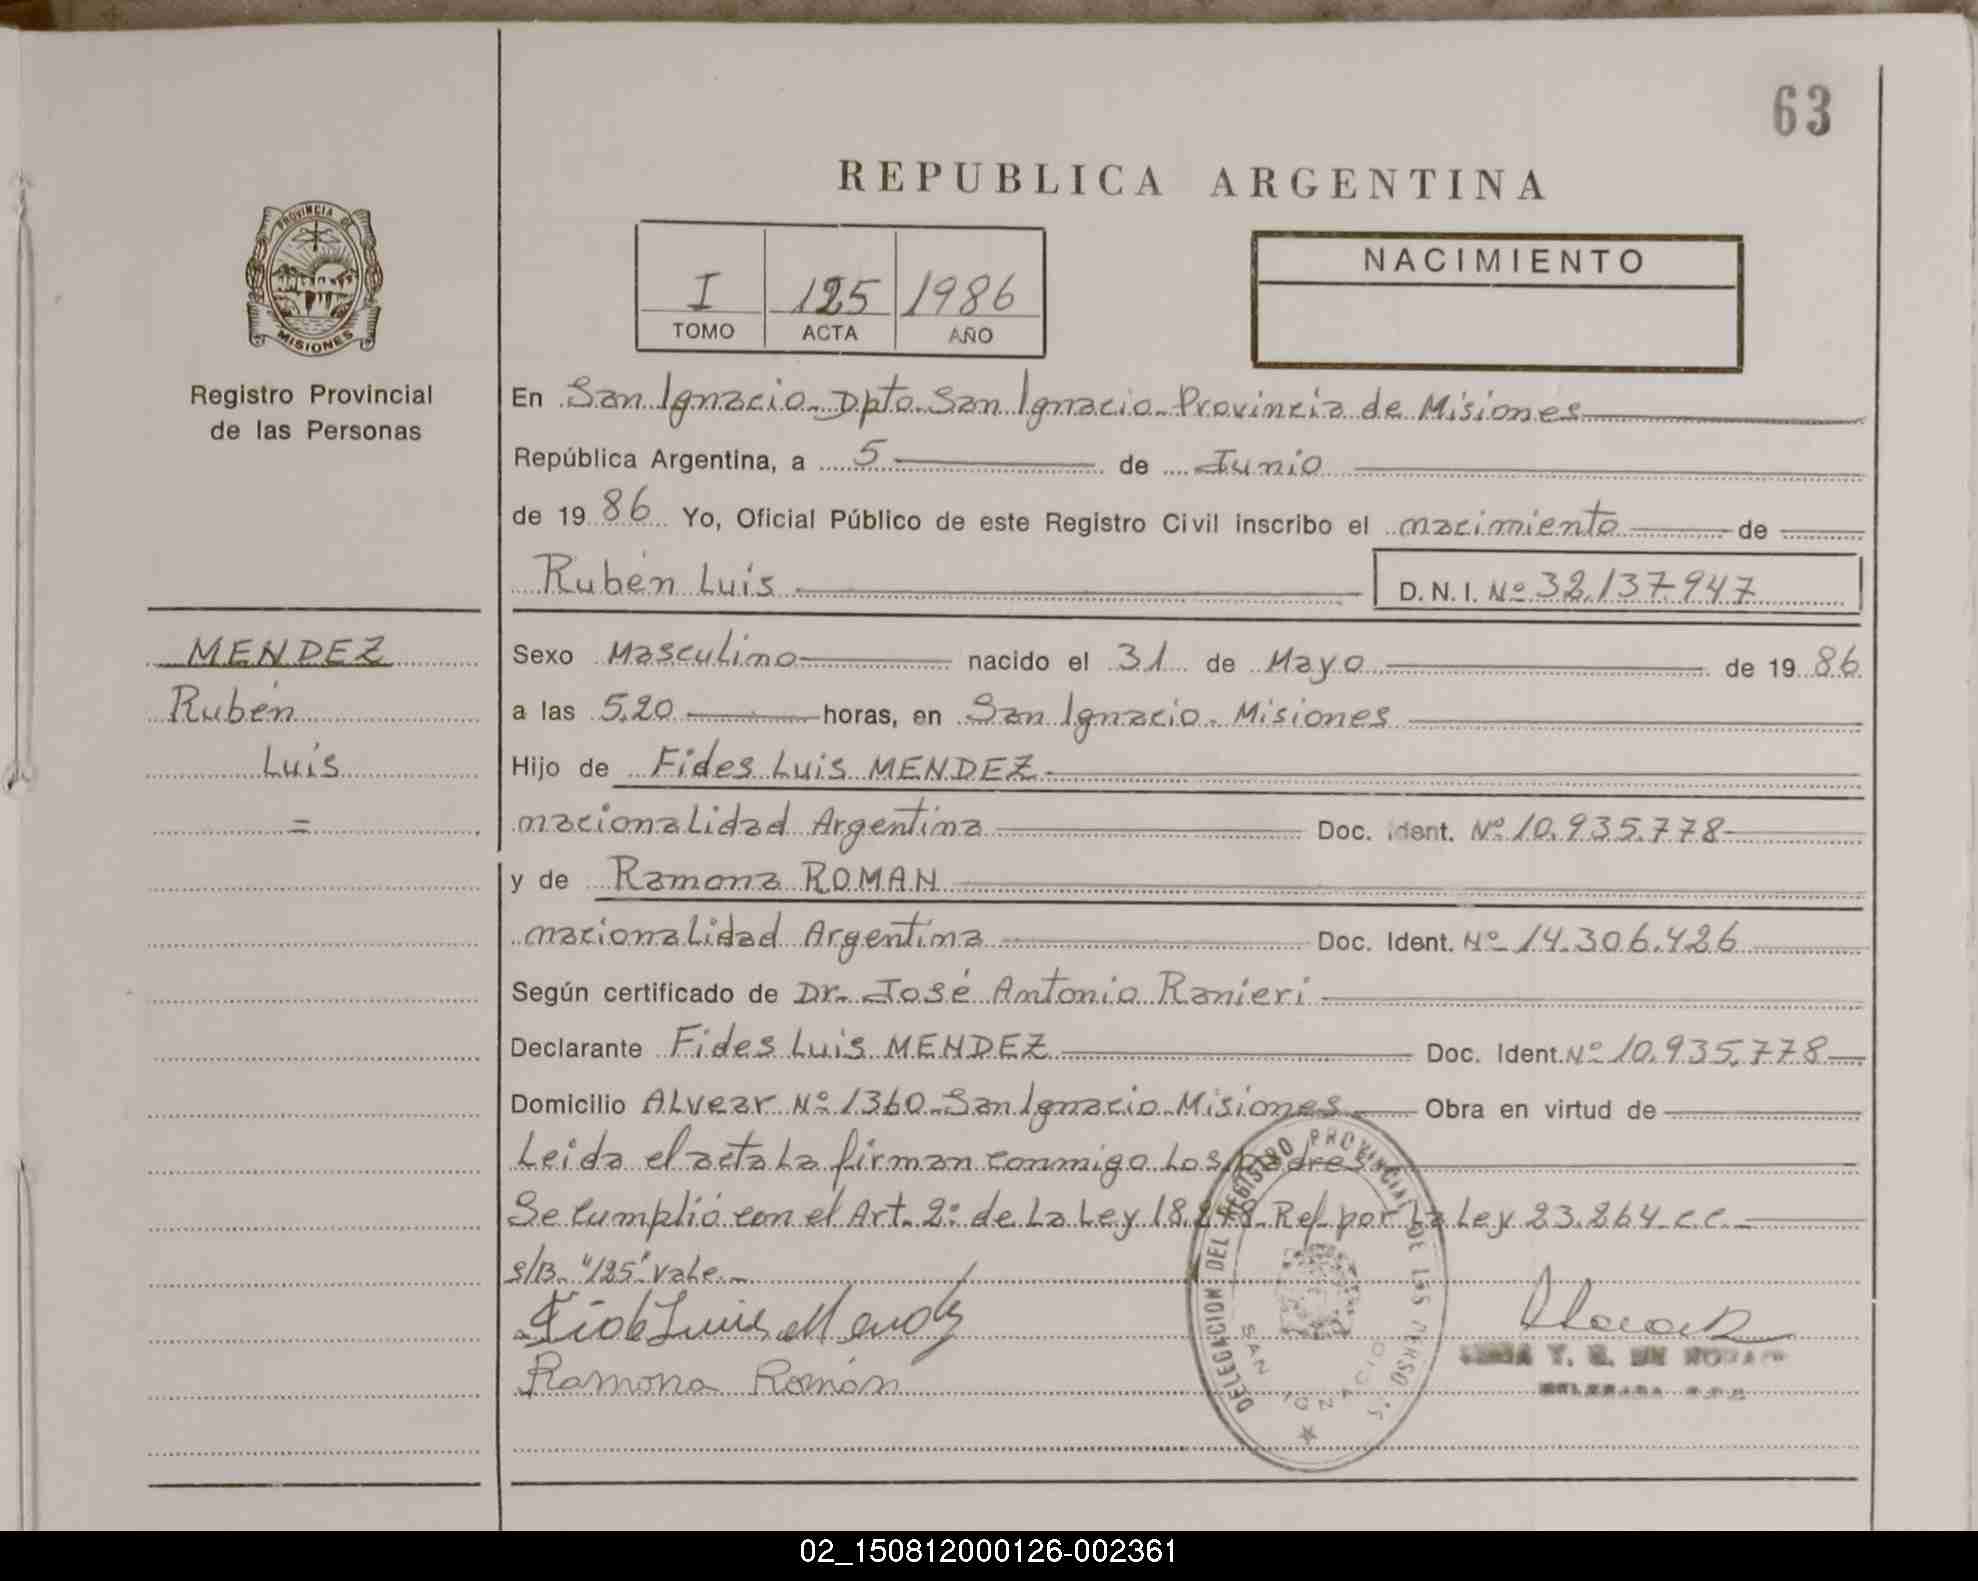 63
REPUBLICA ARGENTINA
PROVINCIA DE
MISIONES
Registro Provincial
de las Personas
I 125 1986
TOMO ACTA AÑO
NACIMIENTO
En San Ignacio - Dpto. San Ignacio - Provincia de Misiones
República Argentina, a 5 de Junio
de 1986 Yo, Oficial Público de este Registro Civil inscribo el nacimiento de
Rubén Luis D.N.I. Nº 32.137.947
MENDEZ
Rubén
Luis
=
Sexo Masculino nacido el 31 de Mayo de 1986
a las 5,20 horas, en San Ignacio - Misiones
Hijo de Fides Luis MENDEZ -
nacionalidad Argentina Doc. Ident. Nº 10.935.778
y de Ramona ROMAN
nacionalidad Argentina Doc. Ident. Nº 14.306.426
Según certificado de Dr. José Antonio Ranieri
Declarante Fides Luis MENDEZ Doc. Ident. Nº 10.935.778
Domicilio Alvear Nº 1360 - San Ignacio - Misiones Obra en virtud de
Leida el acta la firman conmigo los padres
Se cumplió con el Art. 2º de la Ley 18.248 - Ref. por la Ley 23.264 c.c.
s/B. "125" vale. -
Ramona Román
DELEGACION DEL REGISTRO PROVINCIAL DE LAS PERSO
SAN IGNACIO
02_150812000126-002361